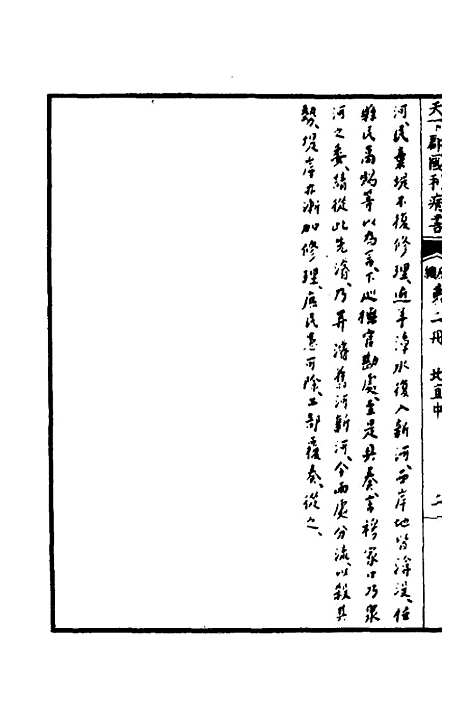 天下郡國利病書 原編第二册 北直中 二
河民棄堤不復修理近年漳水復入新河兩岸地皆渰沒任
縣民高 等以為言下巡撫官勘處至是具奏言穆家口乃眾
河之委請從此先濬乃并濬舊河新河令兩處分流以殺其
勢堤岸亦漸加修理庶民患可除工部覆奏從之